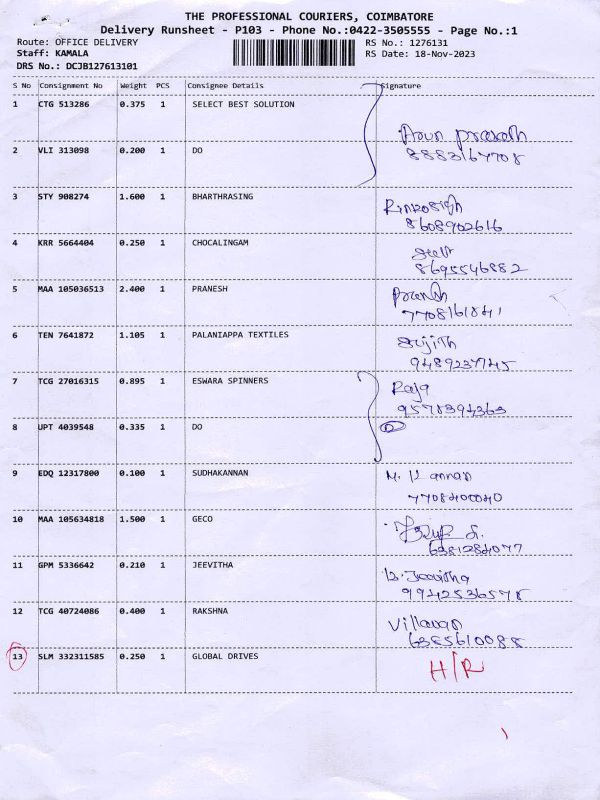 THE PROFESSIONAL COURIERS, COIMBATORE
Delivery Runsheet - P103 - Phone No.:0422-3505555 - Page No.:1
Route: OFFICE DELIVERY RS No.: 1276131
Staff: KAMALA RS Date: 18-Nov-2023
DRS No.: DCJB127613101
S No Consignment No Weight PCS Consignee Details Signature
1 CTG 513286 0.375 1 SELECT BEST SOLUTION
Arun prasath
8883167708
2 VLI 313098 0.200 1 DO
3 STY 908274 1.600 1 BHARTHRASING
8608902616
4 KRR 5664404 0.250 1 CHOCALINGAM
8695546882
5 MAA 105036513 2.400 1 PRANESH
Pranesh
7708161841
6 TEN 7641872 1.105 1 PALANIAPPA TEXTILES
Sujith
9489237745
7 TCG 27016315 0.895 1 ESWARA SPINNERS
Raja
9578394363
8 UPT 4039548 0.335 1 DO
9 EDQ 12317800 0.100 1 SUDHAKANNAN
M. Kannan
7708400040
10 MAA 105634818 1.500 1 GECO
6381284077
11 GPM 5336642 0.210 1 JEEVITHA
B. Jeevitha
9942536578
12 TCG 40724086 0.400 1 RAKSHNA
Villavan
6385610088
13 SLM 332311585 0.250 1 GLOBAL DRIVES
H/R